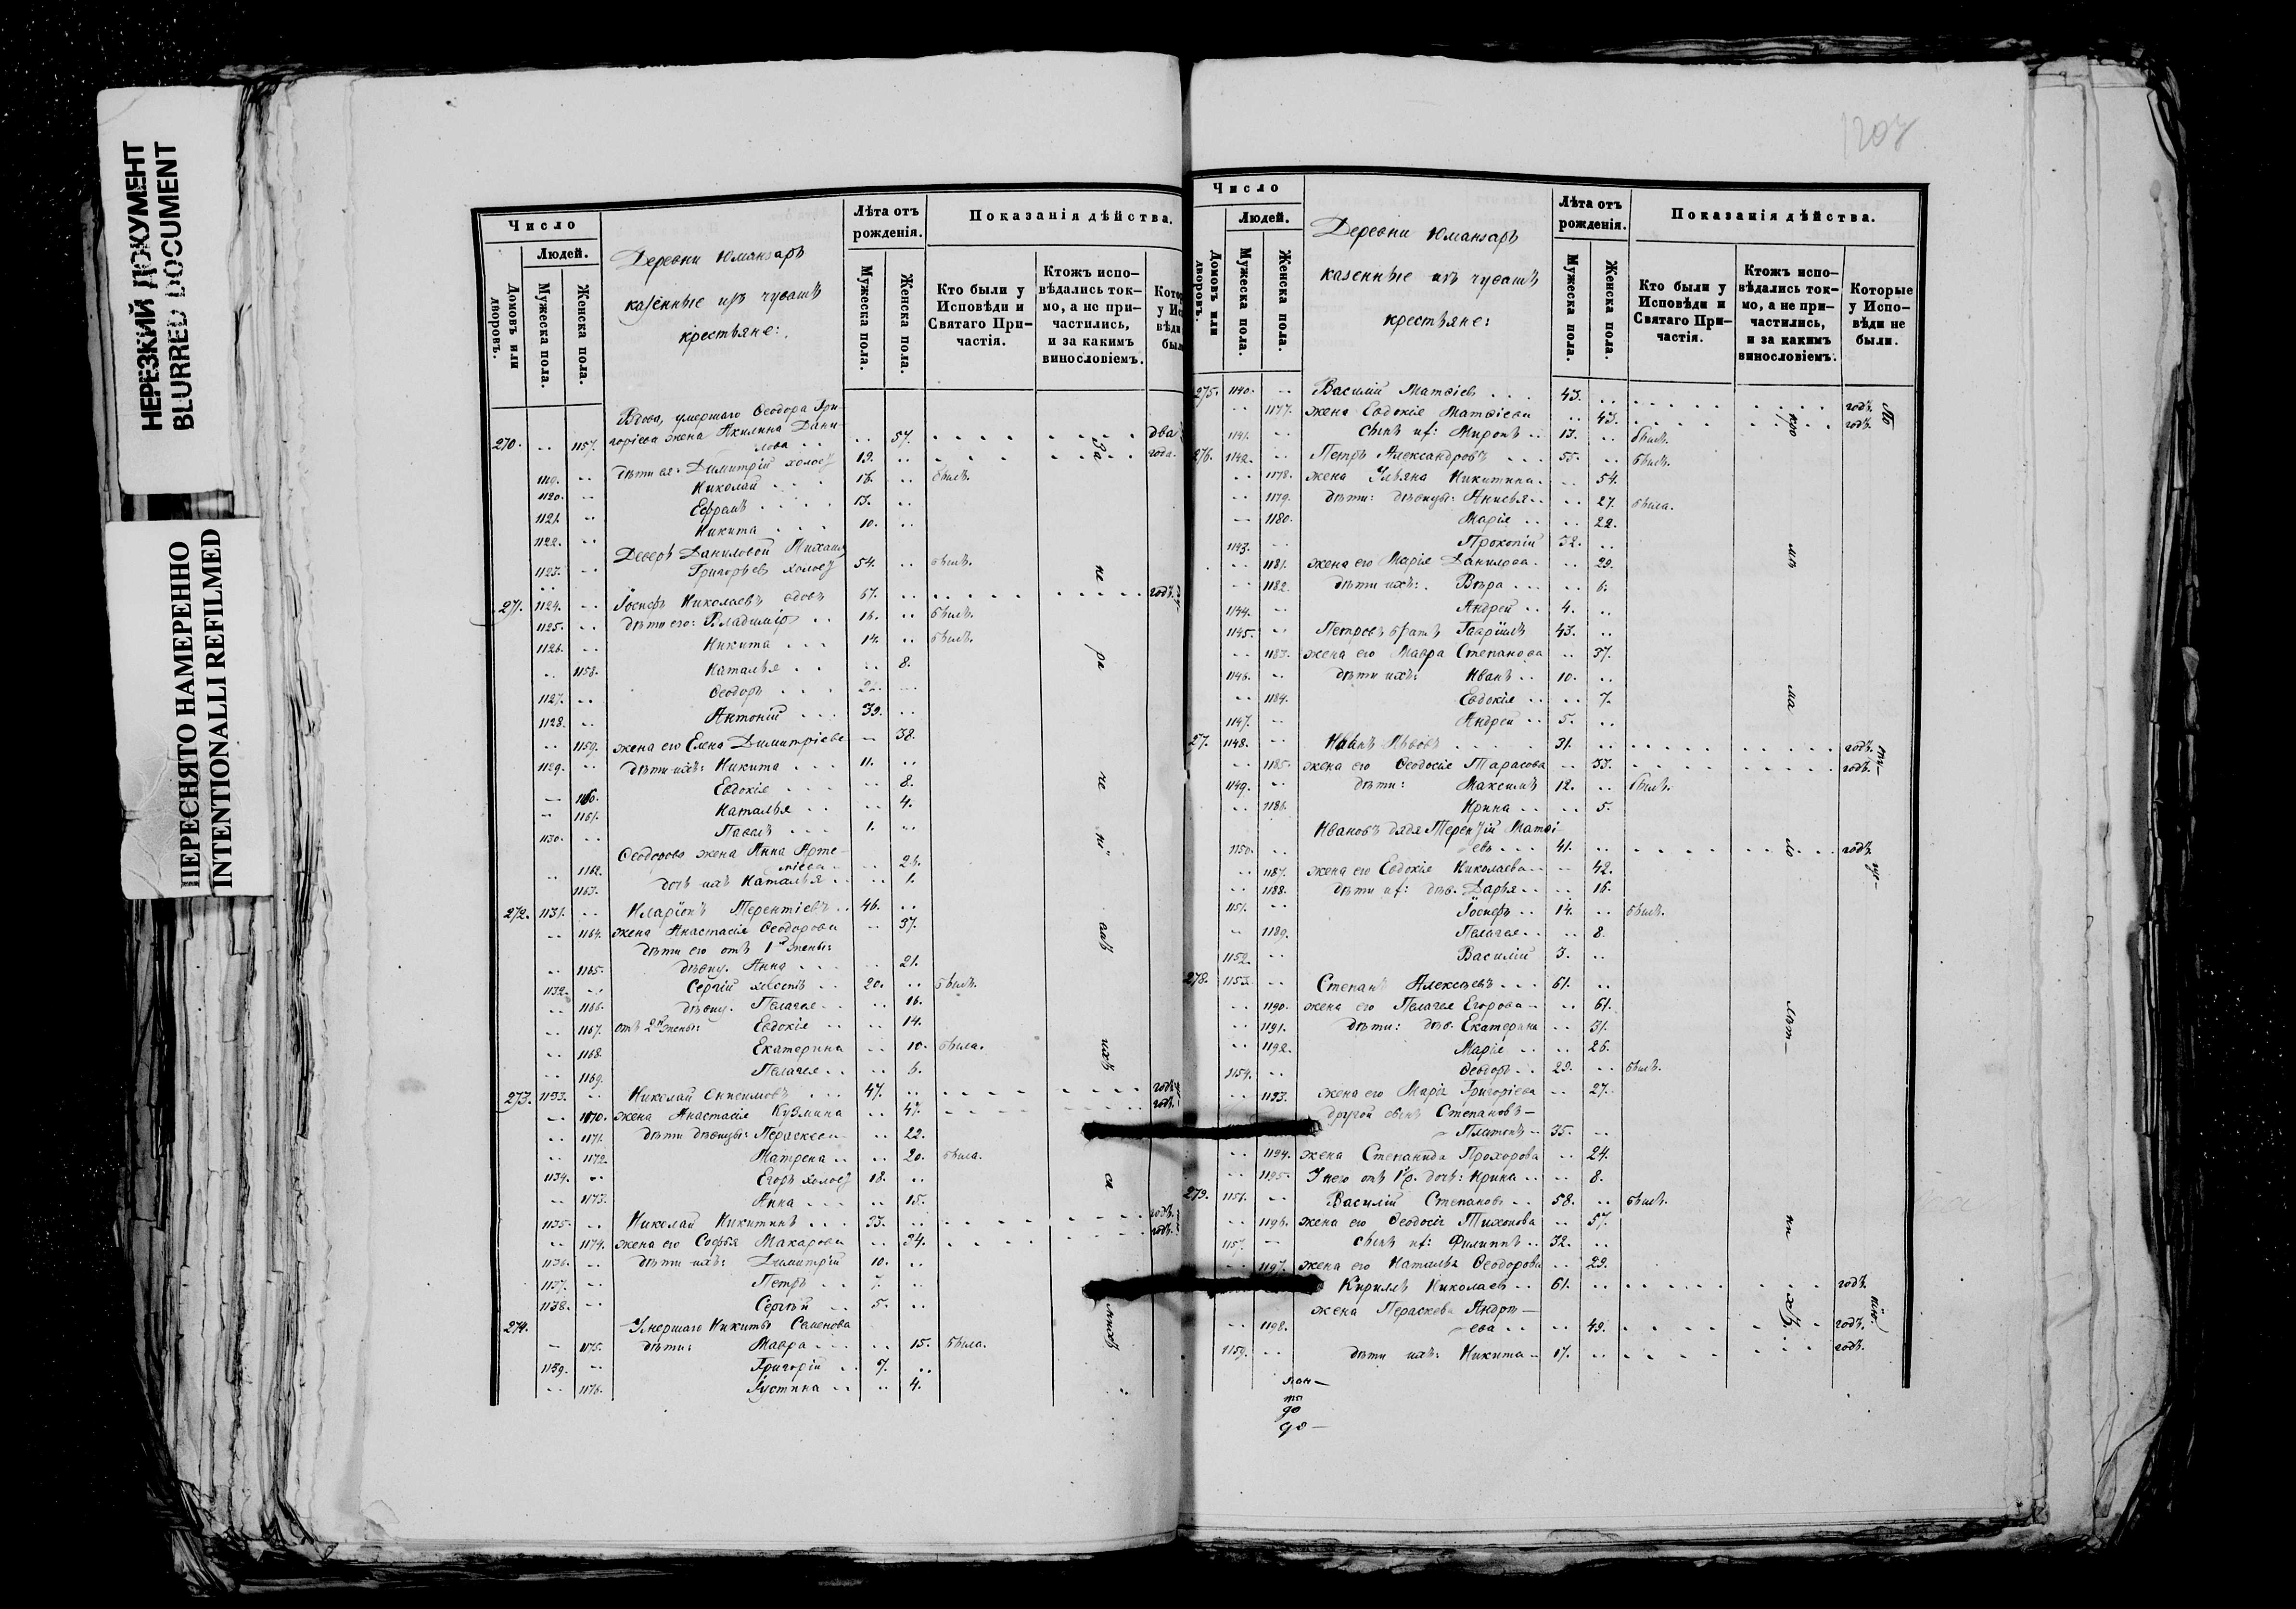 НЕРЕЗКИЙ ДОКУМЕНТ
BLURRED DOCUMENT
ПЕРЕСНЯТО НАМЕРЕННО
INTENTIONALLI REFILMED
Число
Людей.
Домовъ или дворовъ.
Мужеска пола.
Женска пола.
Деревни Юманзаръ
казенные изъ чувашъ
крестьяне:
Лѣта отъ рожденія.
Мужеска пола.
Женска пола.
Показанія дѣйства.
Кто были у Исповѣди и Святаго Причастія.
Ктожъ исповѣдались токмо, а не причастились, и за какимъ винословіемъ.
Вдова, умершаго Ѳеодора Гри-
270. 1157. горіева жена Акилина Дани-
лова 57. два
дѣти ея: Димитрій холос 19. года.
1119. Николай 16. былъ.
1120. Ефремъ 13.
1121. Никита 10.
1122.
Деверь Даниловой Михаилъ
1123. Григорьевъ холос 54. былъ.
271. 1124. Іосифъ Николаевъ вдовъ 67. годъ.
1125. дѣти его: Владиміръ 16. былъ.
1126. Никита 14. былъ.
1158. Наталья 8.
1127. Ѳеодоръ
1128. Антоній 39.
1159. жена его Елена Димитріева 38.
1129. дѣти ихъ: Никита 11.
1160. Евдокія 8.
1161. Наталья 4.
1130. Павелъ 1.
Ѳеодорова жена Анна Арте-
1162. міева 24.
1163. дочь ихъ Наталья 1.
272. 1131. Иларіонъ Терентіевъ 46.
1164. жена Анастасія Ѳеодорова 37.
дѣти его отъ 1й жены:
1165. дѣвиц. Анна 21.
1132. Сергій холостъ 20. былъ.
1166. дѣвиц. Пелагея 16.
1167. отъ 2й жены: Евдокія 14.
1168. Екатерина 10. была.
1169. Пелагея 6.
273. 1133. Николай Онисимовъ 47. годъ
1170. жена Анастасія Кузмина 47. годъ.
1171. дѣти дѣвицы: Параскева 22.
1172. Матрена 20. была.
1134. Егоръ холос 18.
1173. Анна 15.
1135. Николай Никитинъ 33. годъ.
1174. жена его Софья Макарова 34. годъ.
1136. дѣти ихъ: Димитрій 10.
1137. Петръ 7.
1138. Сергѣй 5.
274. Умершаго Никиты Семенова
1175. дѣти: Мавра 15. была.
1139. Григорій 7.
1176. Іустина 4.
За не ра че ні емъ ихъ
Число
Людей.
Домовъ или дворовъ.
Мужеска пола.
Женска пола.
Деревни Юманзаръ
казенные изъ чувашъ
крестьяне:
Лѣта отъ рожденія.
Мужеска пола.
Женска пола.
Показанія дѣйства.
Кто были у Исповѣди и Святаго Причастія.
Ктожъ исповѣдались токмо, а не причастились, и за какимъ винословіемъ.
Которые у Исповѣди не были.
275. 1140. Василій Матвіевъ 43. годъ.
1177. жена Евдокія Матвіева 43. годъ.
1141. сынъ их: Миронъ 13. былъ.
276. 1142. Петръ Александровъ 55. былъ.
1178. жена Ульяна Никитина 54.
1179. дѣти: дѣвицы: Анисья 27. была.
1180. Марія 22.
1143. Прокопій 32.
1181. жена его Марія Данилова 29.
1182. дѣти ихъ: Вѣра 6.
1144. Андрей 4.
1145. Петровъ братъ Гавріилъ 43.
1183. жена его Мавра Степанова 37.
1146. дѣти ихъ: Иванъ 10.
1184. Евдокія 7.
1147. Андрей 5.
27. 1148. Иванъ Львовъ 31. годъ.
1185. жена его Ѳеодосія Тарасова 33. годъ.
1149. дѣти: Максимъ 12. былъ.
1186. Ирина 5.
Ивановъ дядя Терентій Матві-
1150. евъ 41. годъ.
1187. жена его Евдокія Николаева 42.
1188. дѣти их: дѣв. Дарья 16.
1151. Іосифъ 14. былъ.
1189. Пелагея 8.
1152. Василій 3.
278. 1153. Степанъ Алексѣевъ 61.
1190. жена его Пелагея Егорова 61.
1191. дѣти: дѣв. Екатерина 31.
1192. Марія 26.
1154. Ѳеодоръ 29. былъ.
1193. жена его Марія Григоріева 27.
другой сынъ Степановъ
Платонъ 35.
1194. жена Степанида Прохорова 24.
1195. У него отъ 1 бр. дочь: Ирина 8.
279. 1156. Василій Степановъ 58. былъ.
1196. жена его Ѳеодосія Тихонова 57.
1157. сынъ их: Филиппъ 32.
1197. жена его Наталья Ѳеодорова 29.
Кирилъ Николаевъ 61. годъ.
жена Параскева Андрѣ-
1198. ева 49. годъ.
1159. дѣти ихъ: Никита 17. годъ.